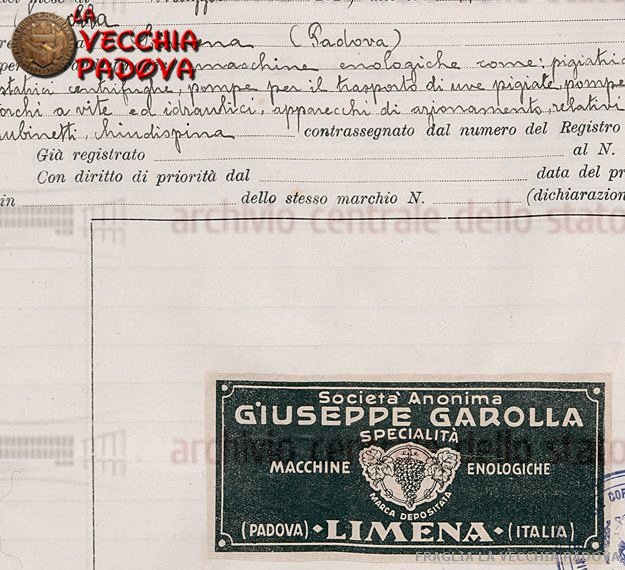 LA
VECCHIA
PADOVA
(Padova)
macchine enologiche come: pigiatrici
centrifughe, pompe per il trasporto di uve pigiate, pompe
a vite ed idraulici, apparecchi di azionamento, relativi
contrassegnato dal numero del Registro
Già registrato al N.
Con diritto di priorità dal data del
dello stesso marchio N. (dichiarazion
archivio centrale dello stato
Società Anonima
GIUSEPPE GAROLLA
SPECIALITÀ
MACCHINE ENOLOGICHE
MARCA DEPOSITATA
(PADOVA) • LIMENA • (ITALIA)
archivio centrale dello stato
FRAGLIA LA VECCHIA PADOVA